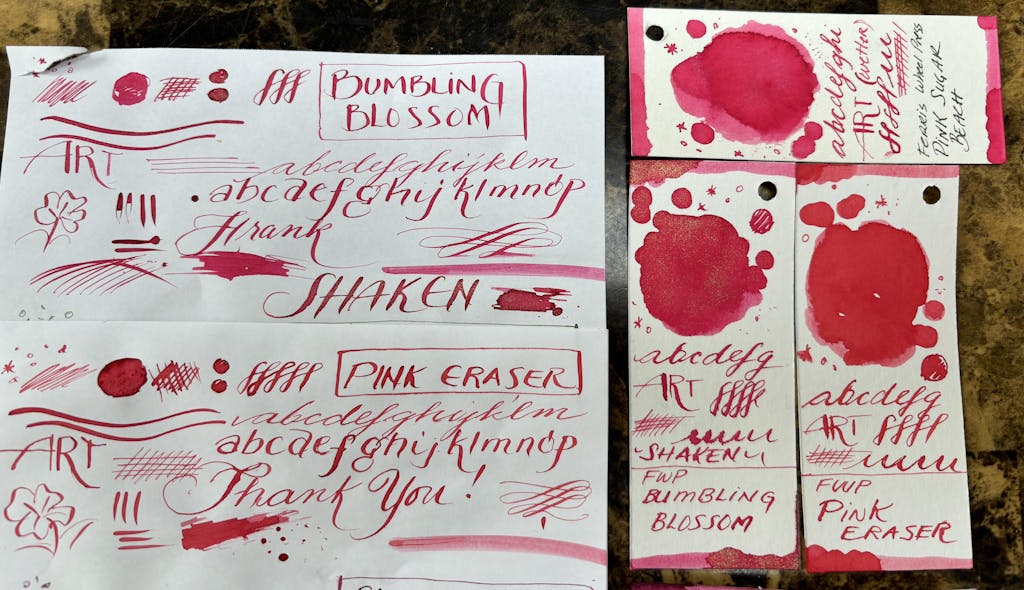 BUMBLING
BLOSSOM
ART
abcdefghijklm
abcdefghijklmnop
SHAKEN
PINK ERASER
abcdefghijklm
ART
abcdefghijklmnop
Thank You!
abcdefghi
ART
FERRIS WHEEL PRESS
PINK SUGAR
BEACH
abcdefg
ART
SHAKEN
FWP
BUMBLING
BLOSSOM
abcdefg
ART
FWP
PINK
ERASER